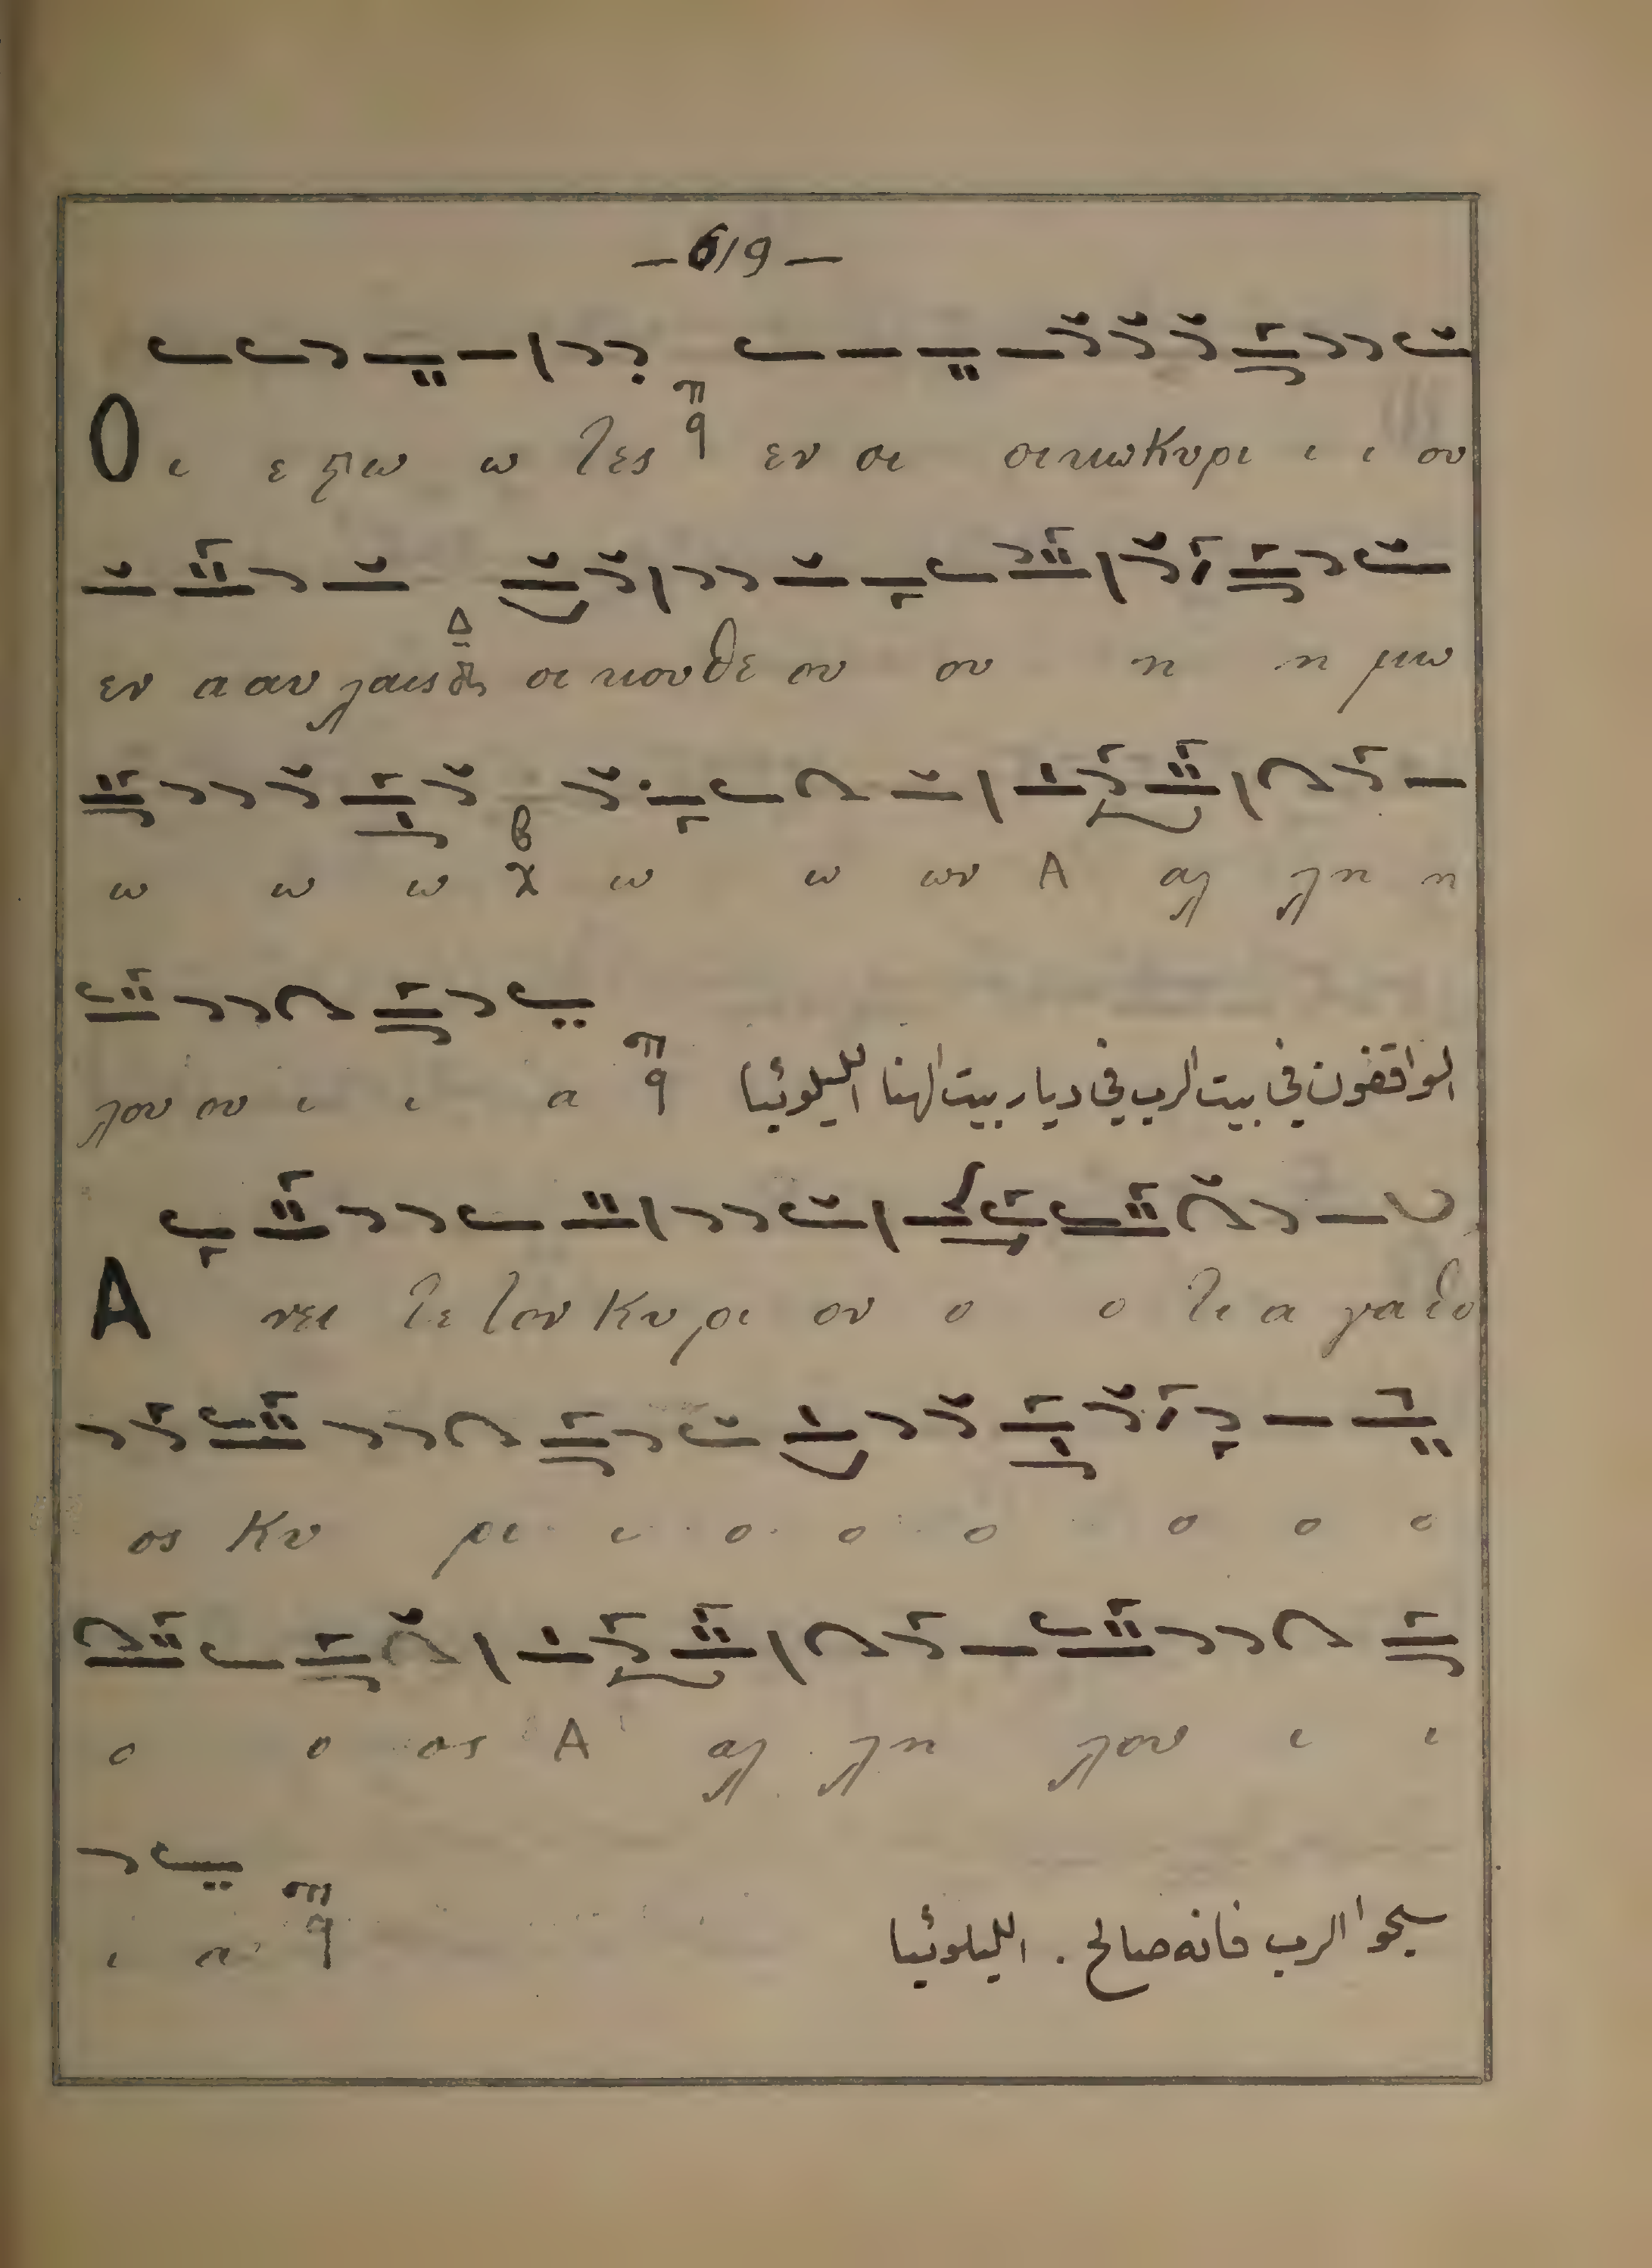 — 619 —
Ο ι ε στω ω τες εν οι οικωΚυρι ι ι ου
εν α αυ λαις οι κουθε ου ου η η μω
ω ω ω ω ω ων Α αλ λη η
λου ου ι ι α الواقفون في بيت الرب في ديار بيت الهنا الليلوئيا
Α νει τε τον Κυ ρι ον ο ο τι α γαθο
ος Κυ ρι ι ο ο ο ο ο ο
ο ο ος Α αλ λη λου ι ι
ι α سبحوا الرب فانه صالح . الليلوئيا